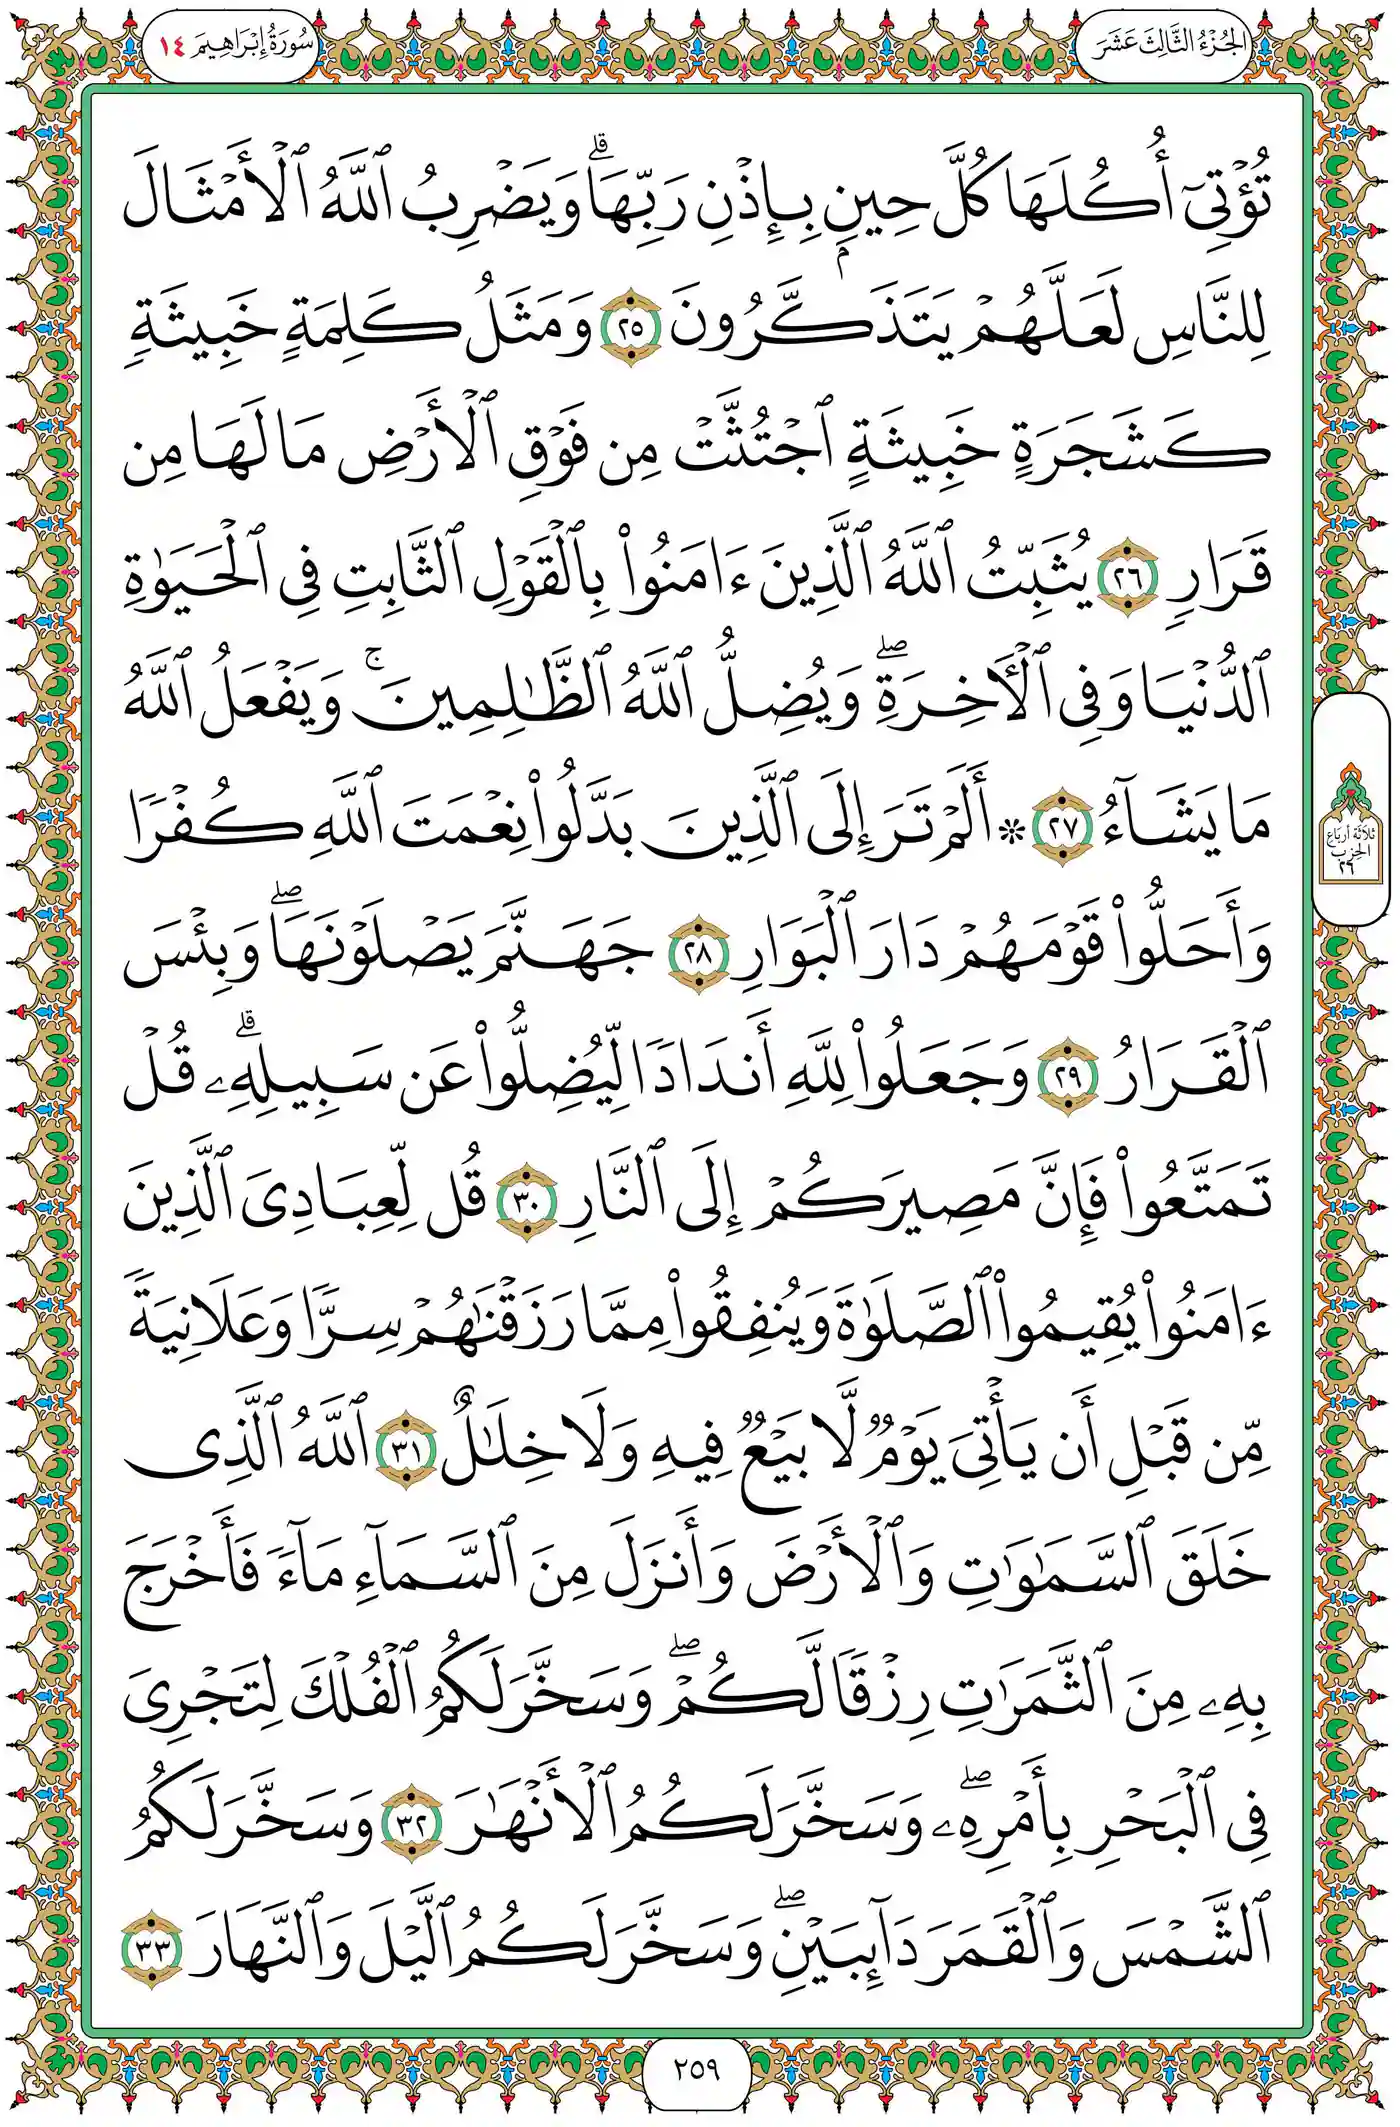 الجزء الثالث عشر
سورة إبراهيم ١٤
تُؤْتِىٓ أُكُلَهَا كُلَّ حِينِۭ بِإِذْنِ رَبِّهَا ۗ وَيَضْرِبُ ٱللَّهُ ٱلْأَمْثَالَ
لِلنَّاسِ لَعَلَّهُمْ يَتَذَكَّرُونَ ٢٥ وَمَثَلُ كَلِمَةٍ خَبِيثَةٍ
كَشَجَرَةٍ خَبِيثَةٍ ٱجْتُثَّتْ مِن فَوْقِ ٱلْأَرْضِ مَا لَهَا مِن
قَرَارٍ ٢٦ يُثَبِّتُ ٱللَّهُ ٱلَّذِينَ ءَامَنُوا۟ بِٱلْقَوْلِ ٱلثَّابِتِ فِى ٱلْحَيَوٰةِ
ٱلدُّنْيَا وَفِى ٱلْـَٔاخِرَةِ ۖ وَيُضِلُّ ٱللَّهُ ٱلظَّـٰلِمِينَ ۚ وَيَفْعَلُ ٱللَّهُ
مَا يَشَآءُ ٢٧ * أَلَمْ تَرَ إِلَى ٱلَّذِينَ بَدَّلُوا۟ نِعْمَتَ ٱللَّهِ كُفْرًا
وَأَحَلُّوا۟ قَوْمَهُمْ دَارَ ٱلْبَوَارِ ٢٨ جَهَنَّمَ يَصْلَوْنَهَا ۖ وَبِئْسَ
ٱلْقَرَارُ ٢٩ وَجَعَلُوا۟ لِلَّهِ أَندَادًا لِّيُضِلُّوا۟ عَن سَبِيلِهِۦ ۗ قُلْ
تَمَتَّعُوا۟ فَإِنَّ مَصِيرَكُمْ إِلَى ٱلنَّارِ ٣٠ قُل لِّعِبَادِىَ ٱلَّذِينَ
ءَامَنُوا۟ يُقِيمُوا۟ ٱلصَّلَوٰةَ وَيُنفِقُوا۟ مِمَّا رَزَقْنَـٰهُمْ سِرًّا وَعَلَانِيَةً
مِّن قَبْلِ أَن يَأْتِىَ يَوْمٌ لَّا بَيْعٌ فِيهِ وَلَا خِلَـٰلٌ ٣١ ٱللَّهُ ٱلَّذِى
خَلَقَ ٱلسَّمَـٰوَٰتِ وَٱلْأَرْضَ وَأَنزَلَ مِنَ ٱلسَّمَآءِ مَآءً فَأَخْرَجَ
بِهِۦ مِنَ ٱلثَّمَرَٰتِ رِزْقًا لَّكُمْ ۖ وَسَخَّرَ لَكُمُ ٱلْفُلْكَ لِتَجْرِىَ
فِى ٱلْبَحْرِ بِأَمْرِهِۦ ۖ وَسَخَّرَ لَكُمُ ٱلْأَنْهَـٰرَ ٣٢ وَسَخَّرَ لَكُمُ
ٱلشَّمْسَ وَٱلْقَمَرَ دَآئِبَيْنِ ۖ وَسَخَّرَ لَكُمُ ٱلَّيْلَ وَٱلنَّهَارَ ٣٣
ثلاثة أرباع
الحزب
٢٦
٢٥٩